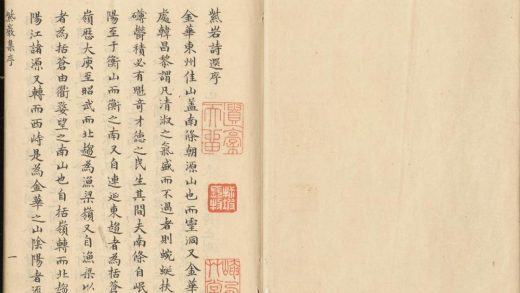 紫岩詩選序
金華東州佳山盖南條朝源山也而靈洞又金華
處韓昌黎謂凡清淑之氣盛而不過者則蜿蜒扶
磅礴鬱積必有魁奇才德之民生其間夫南條自岷
陽至于衡山而衡之南又自連延東趨者為括蒼
嶺歴大庾至昭武而北趨為漁梁嶺又自漁梁以
者為括蒼由衢婺望之南山也自括嶺轉而北趨
陽江諸源又轉而西峙是為金華之山陰陽者
紫巖集序
一